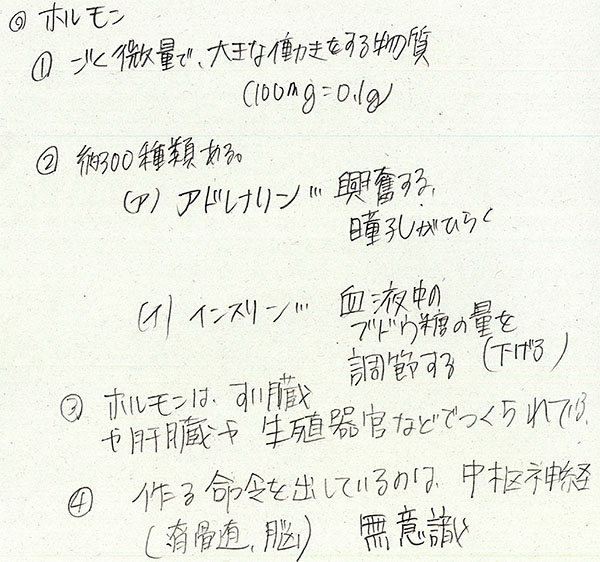 ◎ ホルモン
① ごく微量で、大きな働きをする物質
(100mg=0.1g)
② 約300種類ある。
(ア) アドレナリン… 興奮する、
瞳孔がひらく
(イ) インスリン… 血液中の
ブドウ糖の量を
調節する (下げる)
③ ホルモンは、すい臓
や肝臓や 生殖器官などでつくられている。
④ 作る命令を出しているのは、中枢神経
(脊骨道、脳) 無意識